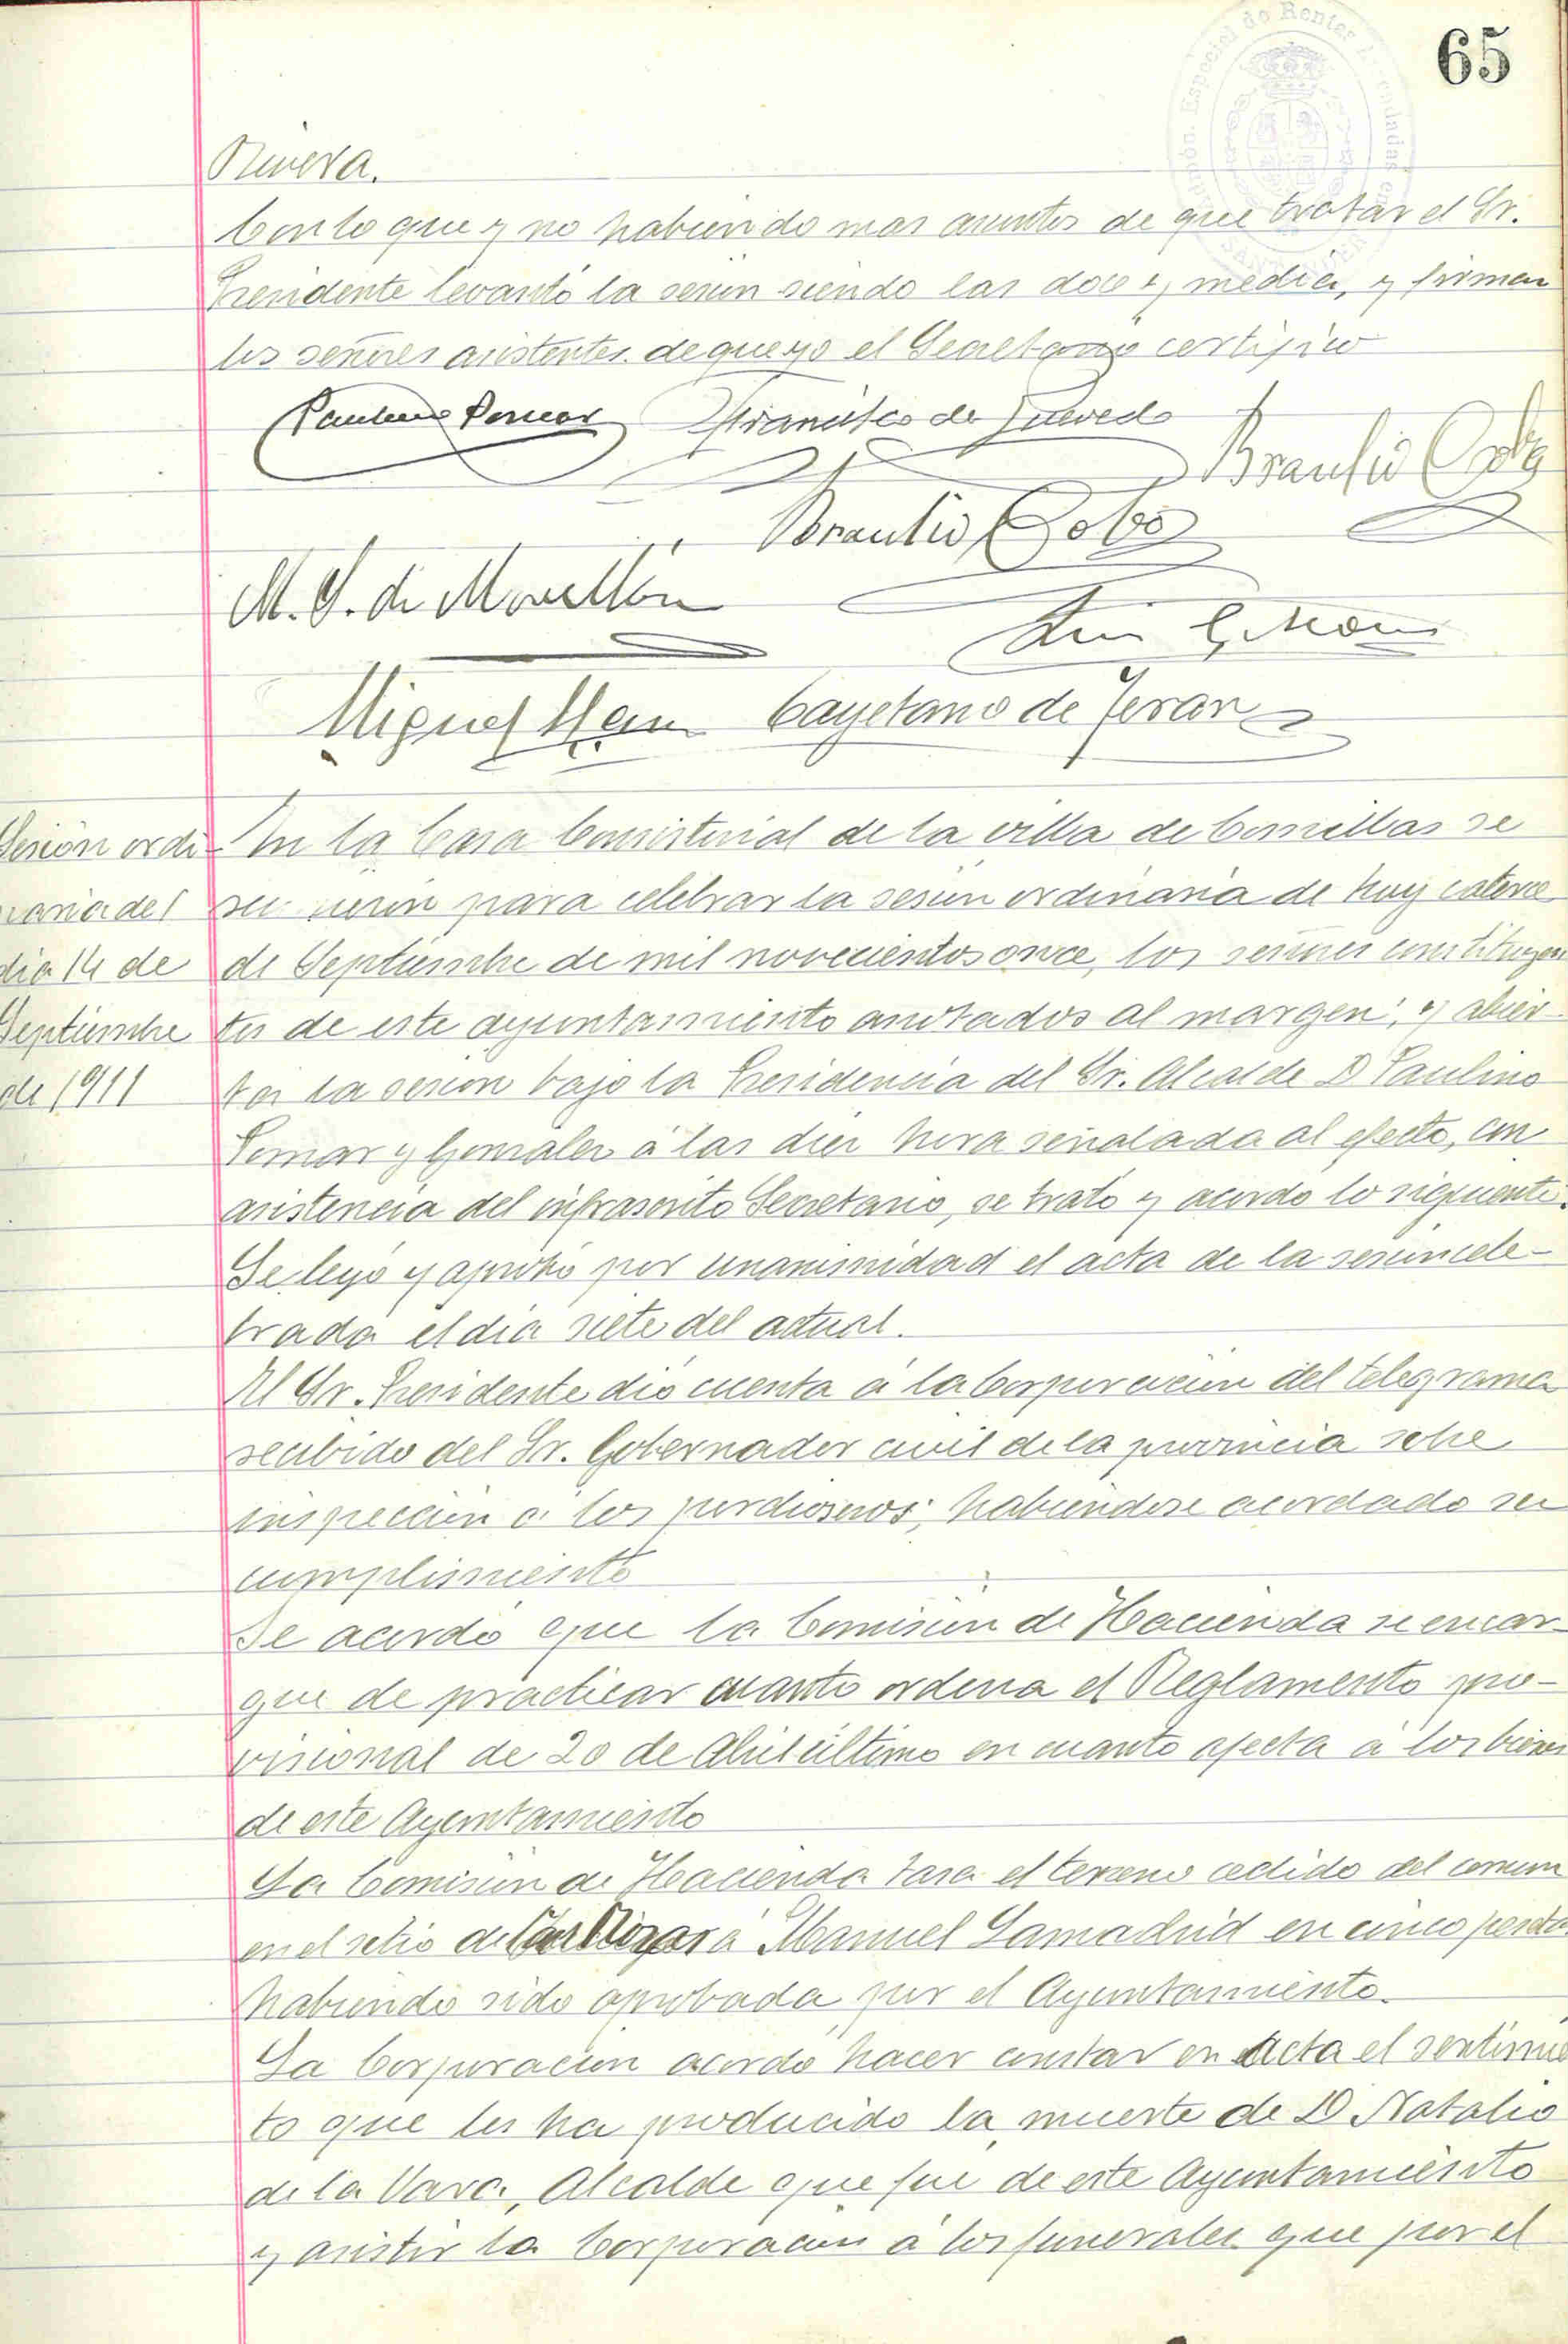 65
Rivera.
Con lo que y no habiendo mas asuntos de que tratar el Sr.
Presidente levantó la sesión siendo las doce y media, y firman
los señores asistentes de que yo el Secretario certifico
Paulino Pomar Francisco de Quevedo
Braulio
Braulio Cobo
M. S. de Movellán
Luis
Miguel Cayetano de Teran
Sesión ordi-
naria del
dia 14 de
Septiembre
de 1911
En la Casa Consistorial de la villa de Comillas se
reunieron para celebrar la sesión ordinaria de hoy catorce
de Septiembre de mil novecientos once, los señores constituyen
tes de este ayuntamiento anotados al margen; y abier-
ta la sesión bajo la Presidencia del Sr. Alcalde D Paulino
Pomar y Gonzalez á las diez hora señalada al efecto, con
asistencia del infrascrito Secretario, se trató y acordo lo siguiente:
Se leyó y aprobó por unanimidad el acta de la sesión cele-
brada el dia siete del actual.
El Sr. Presidente dió cuenta á la Corporación del telegrama
recibido del Sr. Gobernador civil de la provincia sobre
inspección á los pordioseros; habiendose acordado su
cumplimiento
Se acordó que la Comisión de Hacienda se encar-
gue de practicar cuanto ordena el Reglamento pro-
visional de 20 de Abril último en cuanto afecta á los bienes
de este Ayuntamiento
La Comisión de Hacienda tasa el terreno cedido del comun
en el sitio de á Manuel Lamadrid en cinco pesetas
habiendo sido aprobada por el Ayuntamiento.
La Corporación acordó hacer constar en acta el sentimie
to que les ha producido la muerte de D Natalio
de la Vara, Alcalde que fue de este Ayuntamiento
y asistir la Corporación á los funerales que por el